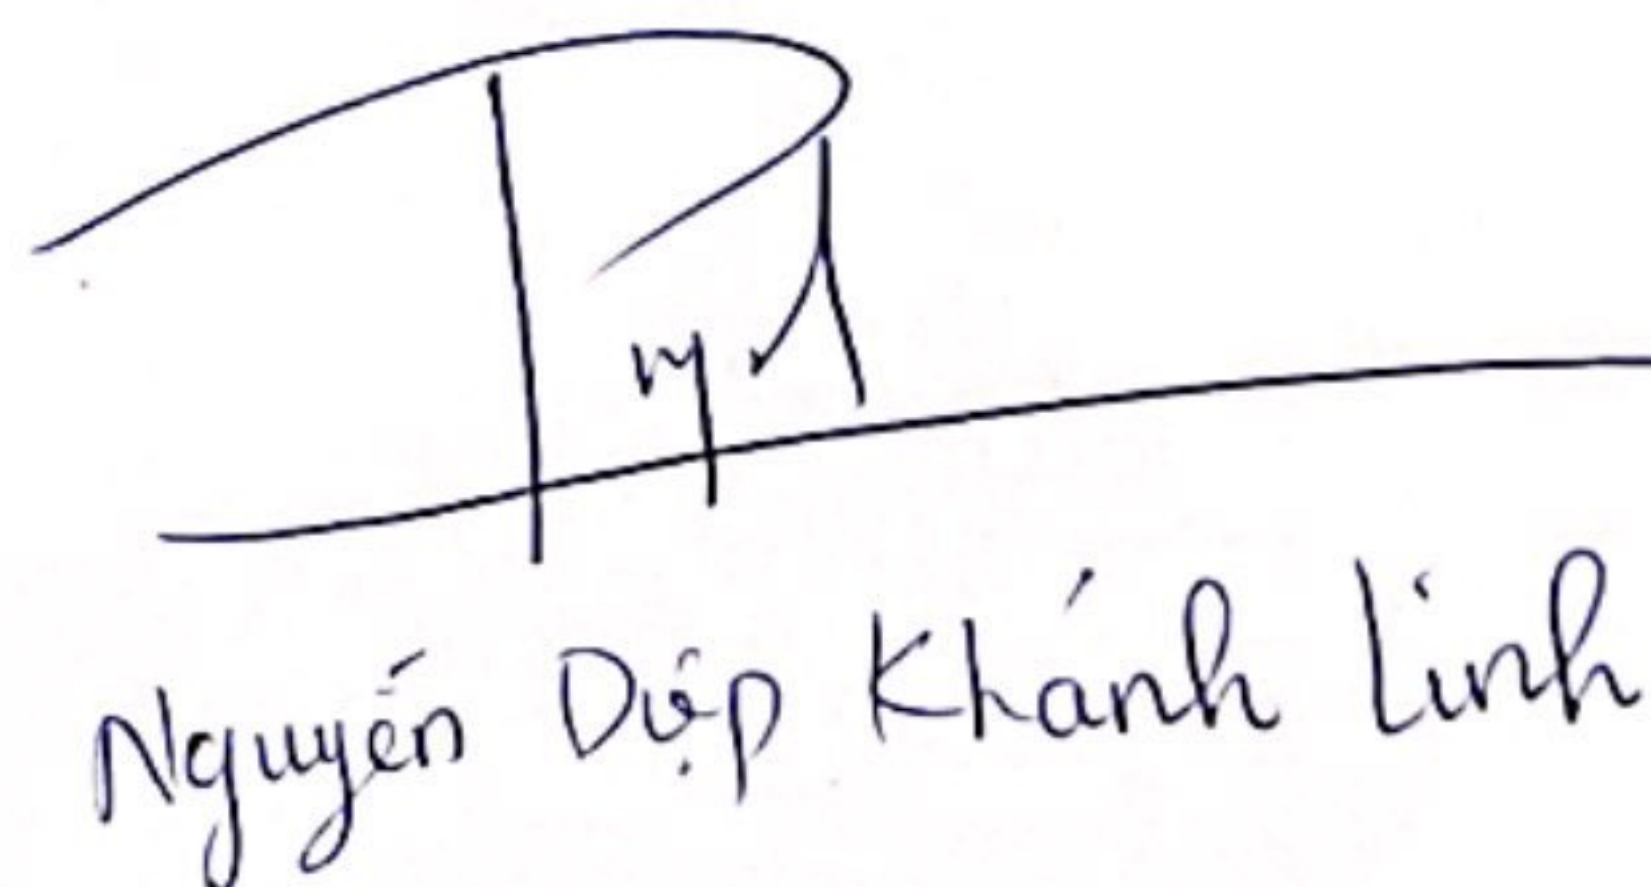 Nguyễn Diệp Khánh Linh